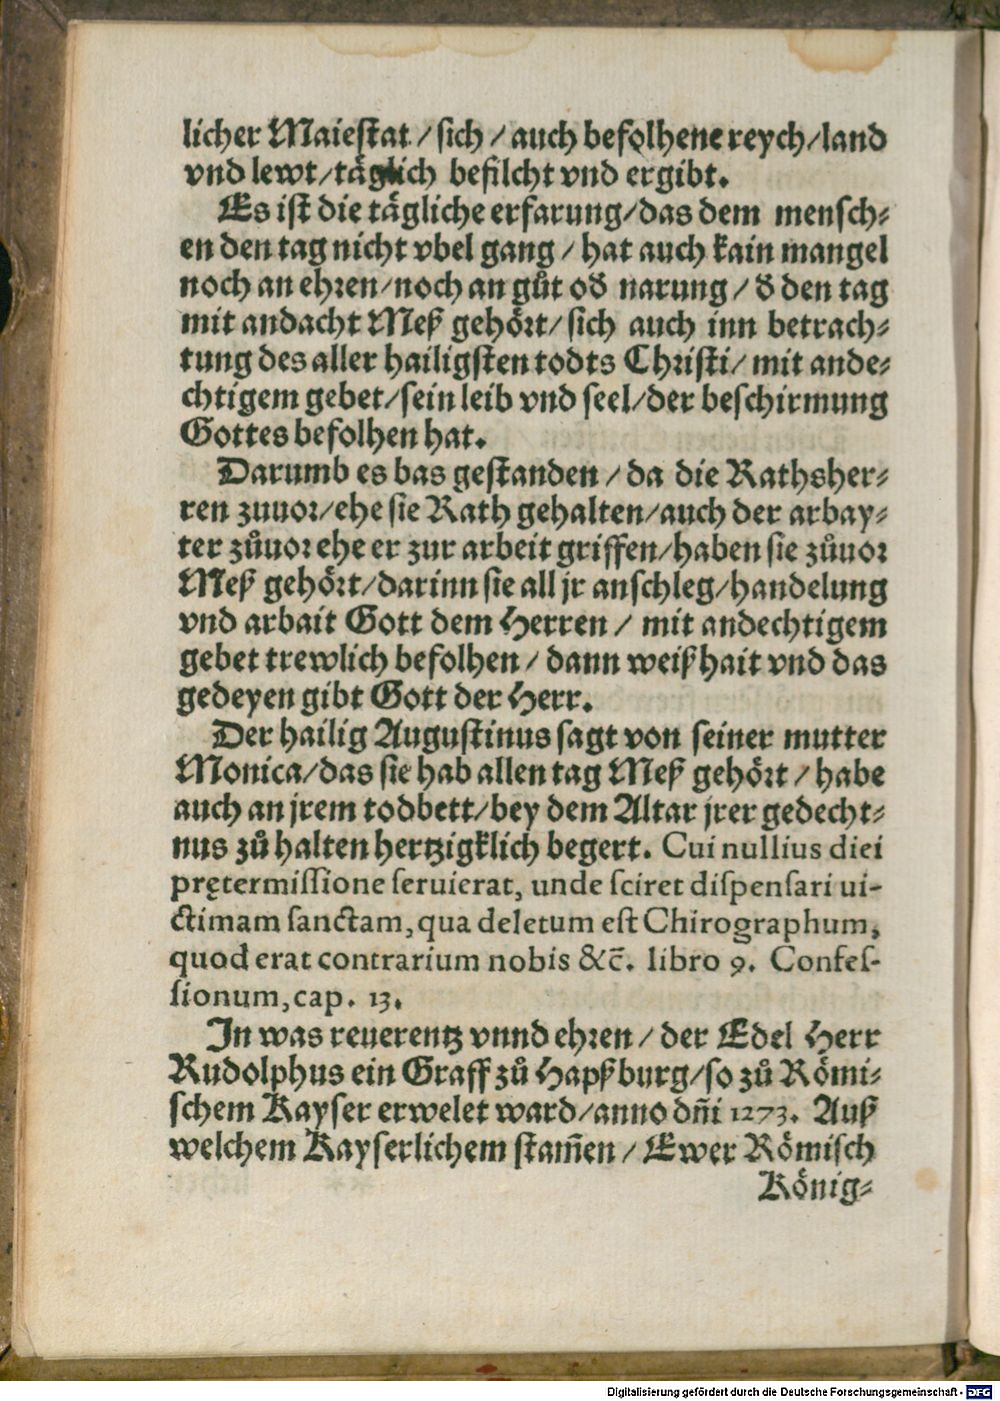 licher Maiestat / sich / auch befolhene reych/land
vnd lewt/täglich befilcht vnd ergibt.
Es ist die tägliche erfarung/das dem mensch⸗
en den tag nicht vbel gang / hat auch kain mangel
noch an ehren/noch an gůt oď narung / ď den tag
mit andacht Meß gehört/sich auch inn betrach⸗
tung des aller hailigsten todts Christi/mit ande⸗
chtigem gebet/sein leib vnd seel/der beschirmung
Gottes befolhen hat.
Darumb es bas gestanden / da die Rathsher⸗
ren zuuor/ehe sie Rath gehalten/auch der arbay⸗
ter zůuor ehe er zur arbeit griffen/haben sie zůuor
Meß gehört/darinn sie all jr anschleg/handelung
vnd arbait Gott dem Herren / mit andechtigem
gebet trewlich befolhen / dann weißhait vnd das
gedeyen gibt Gott der Herr.
Der hailig Augustinus sagt von seiner mutter
Monica/das sie hab allen tag Meß gehört / habe
auch an jrem todbett/bey dem Altar jrer gedecht⸗
nus zů halten hertzigklich begert. Cui nullius diei
prętermissione seruierat, unde sciret dispensari ui-
ctimam sanctam, qua deletum est Chirographum,
quod erat contrarium nobis &c̄. libro 9. Confes-
sionum, cap. 13.
In was reuerentz vnnd ehren / der Edel Herr
Rudolphus ein Graff zů Hapßburg/so zů Römi⸗
schem Kayser erwelet ward/anno dñi 1273. Auß
welchem Kayserlichem stam̄en / Ewer Römisch
König⸗
Digitalisierung gefördert durch die Deutsche Forschungsgemeinschaft - DFG